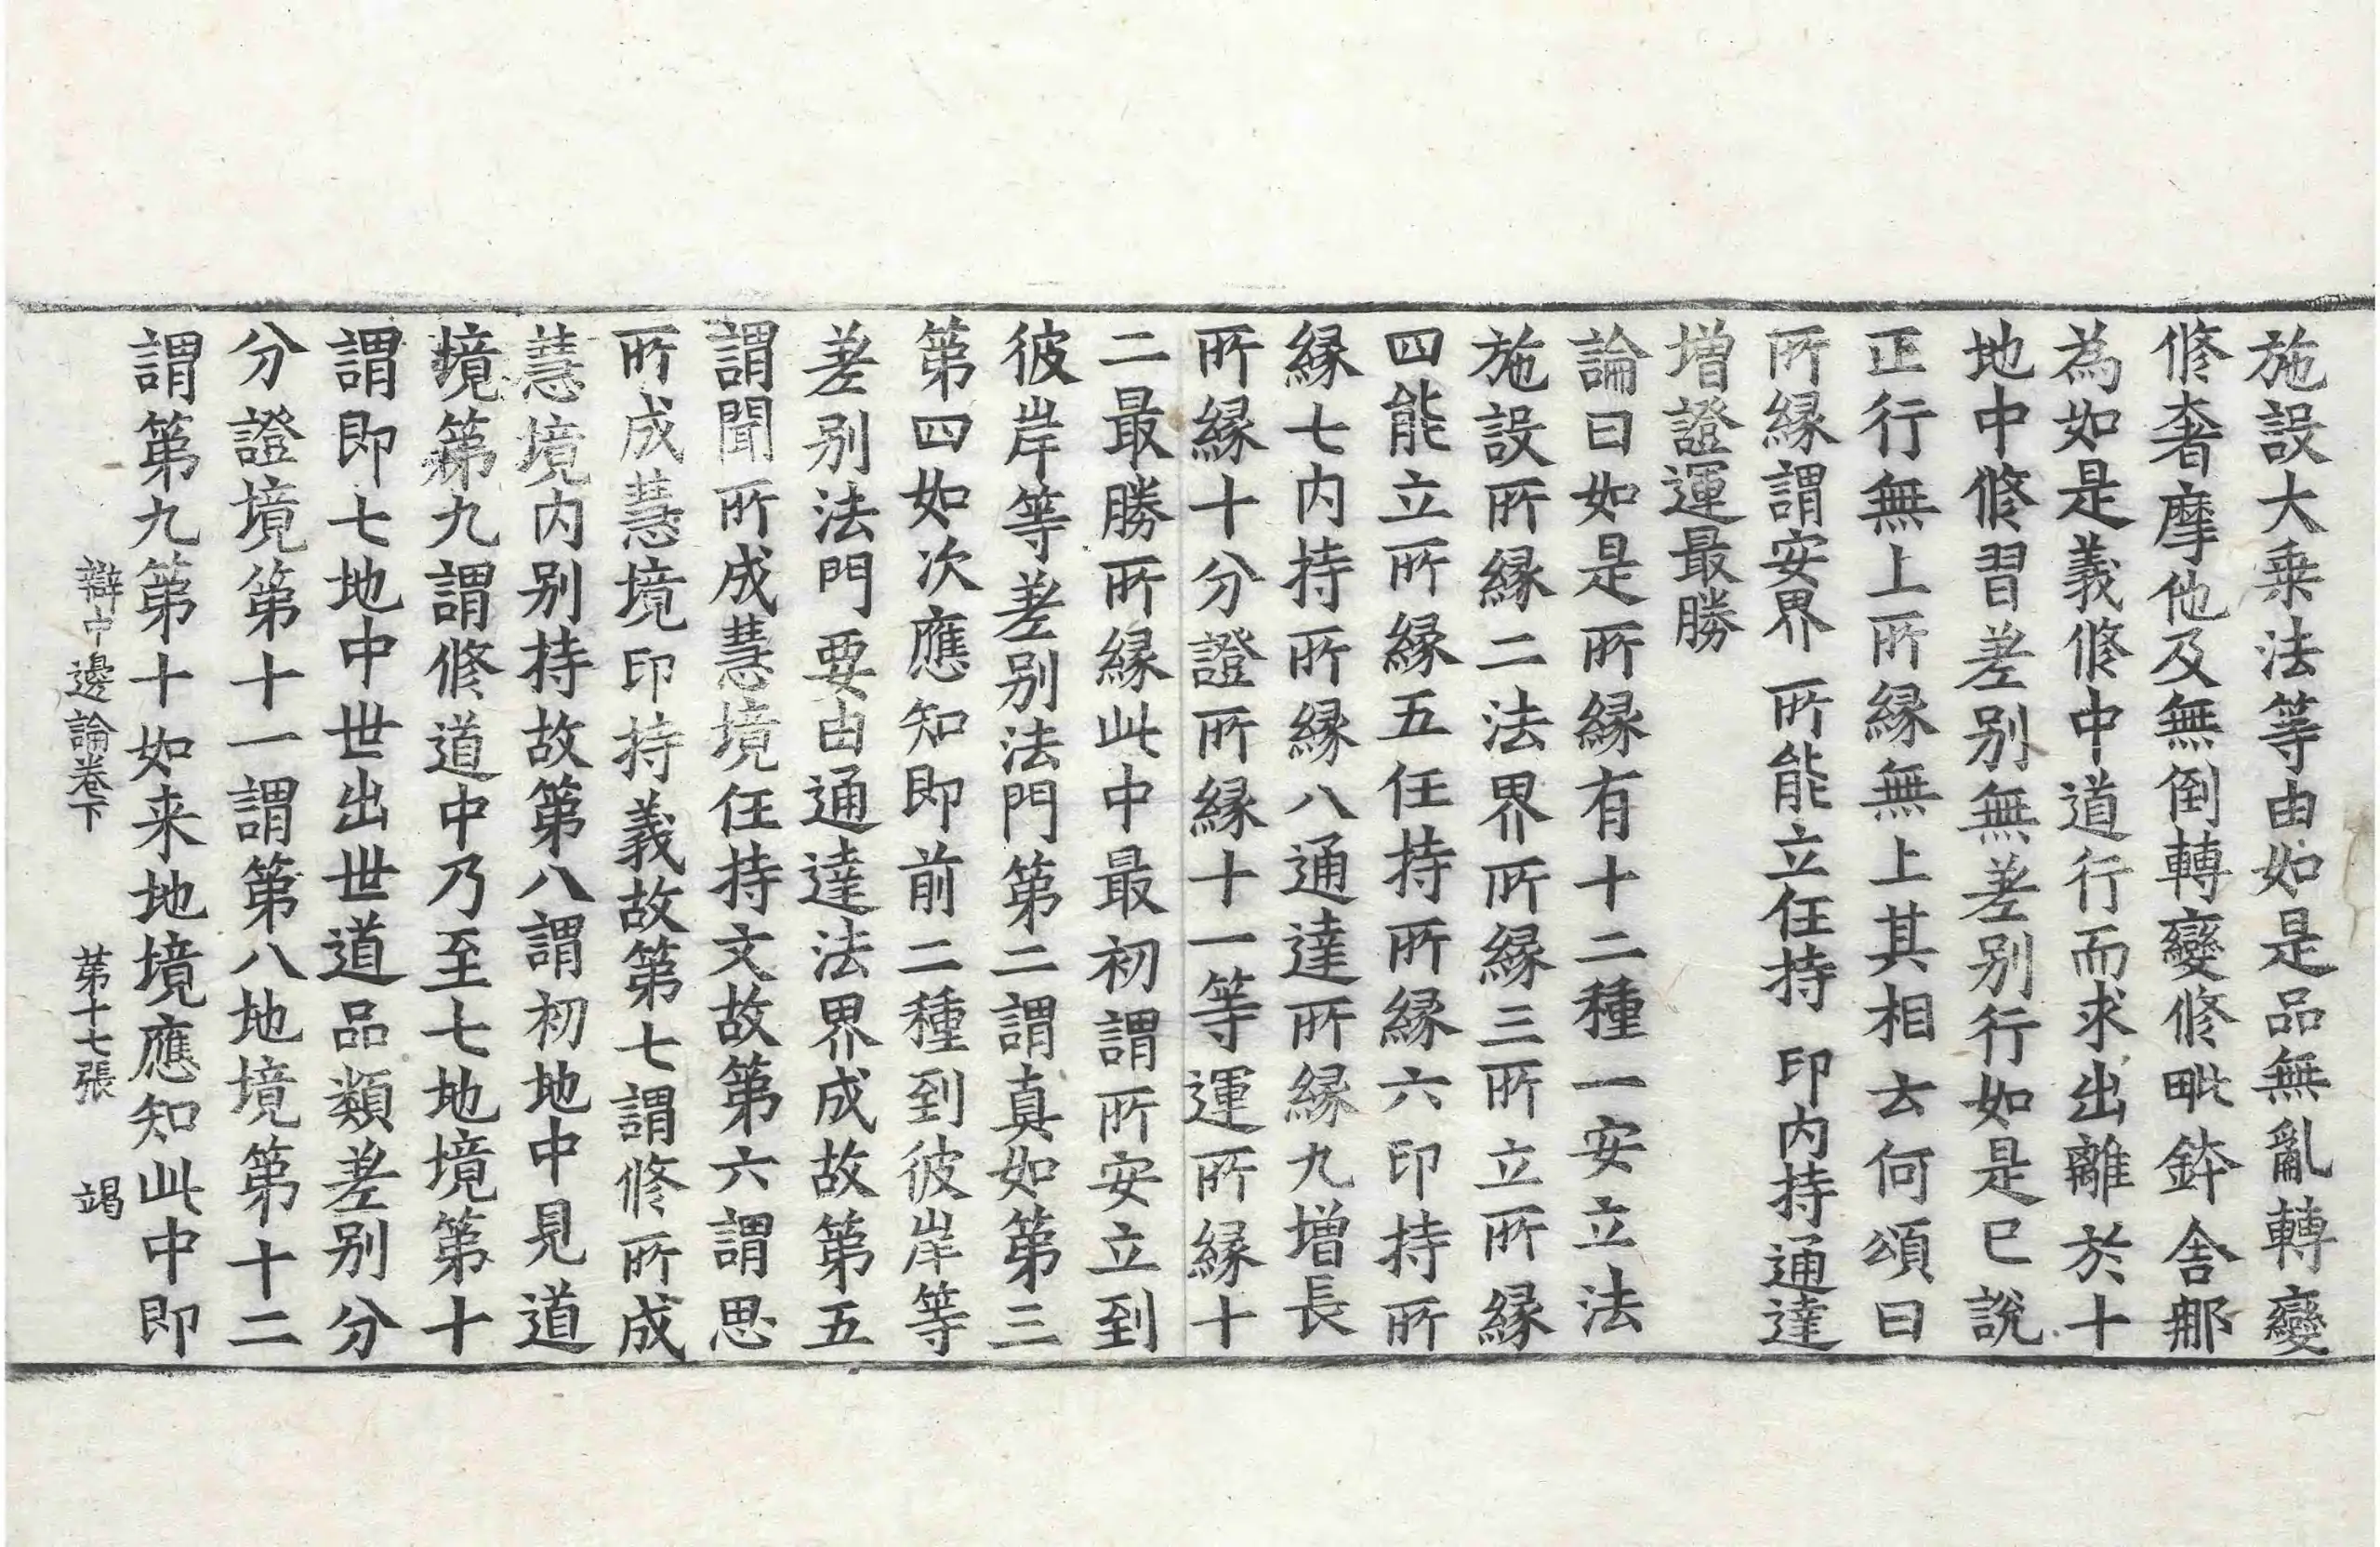 施設大乗法等由如是品無亂轉變
修奢摩他及無倒轉變修毗鉢舍那
為如是義修中道行而求出離於十
地中修習差別無差別行如是已說
正行無上所緣無上其相云何頌曰
所緣謂安界 所能立任持 印內持通達
增證運最勝
論曰如是所緣有十二種一安立法
施設所緣二法界所緣三所立所緣
四能立所緣五任持所緣六印持所
緣七內持所緣八通達所緣九增長
所緣十分證所緣十一等運所緣十
二最勝所緣此中最初謂所安立到
彼岸等差別法門第二謂真如第三
第四如次應知即前二種到彼岸等
差別法門要由通達法界成故第五
謂聞所成慧境任持文故第六謂思
所成慧境印持義故第七謂修所成
慧境內別持故第八謂初地中見道
境第九謂修道中乃至七地境第十
謂即七地中世出世道品類差別分
分證境第十一謂第八地境第十二
謂第九第十如来地境應知此中即
辯中邊論卷下 苐十七張 竭